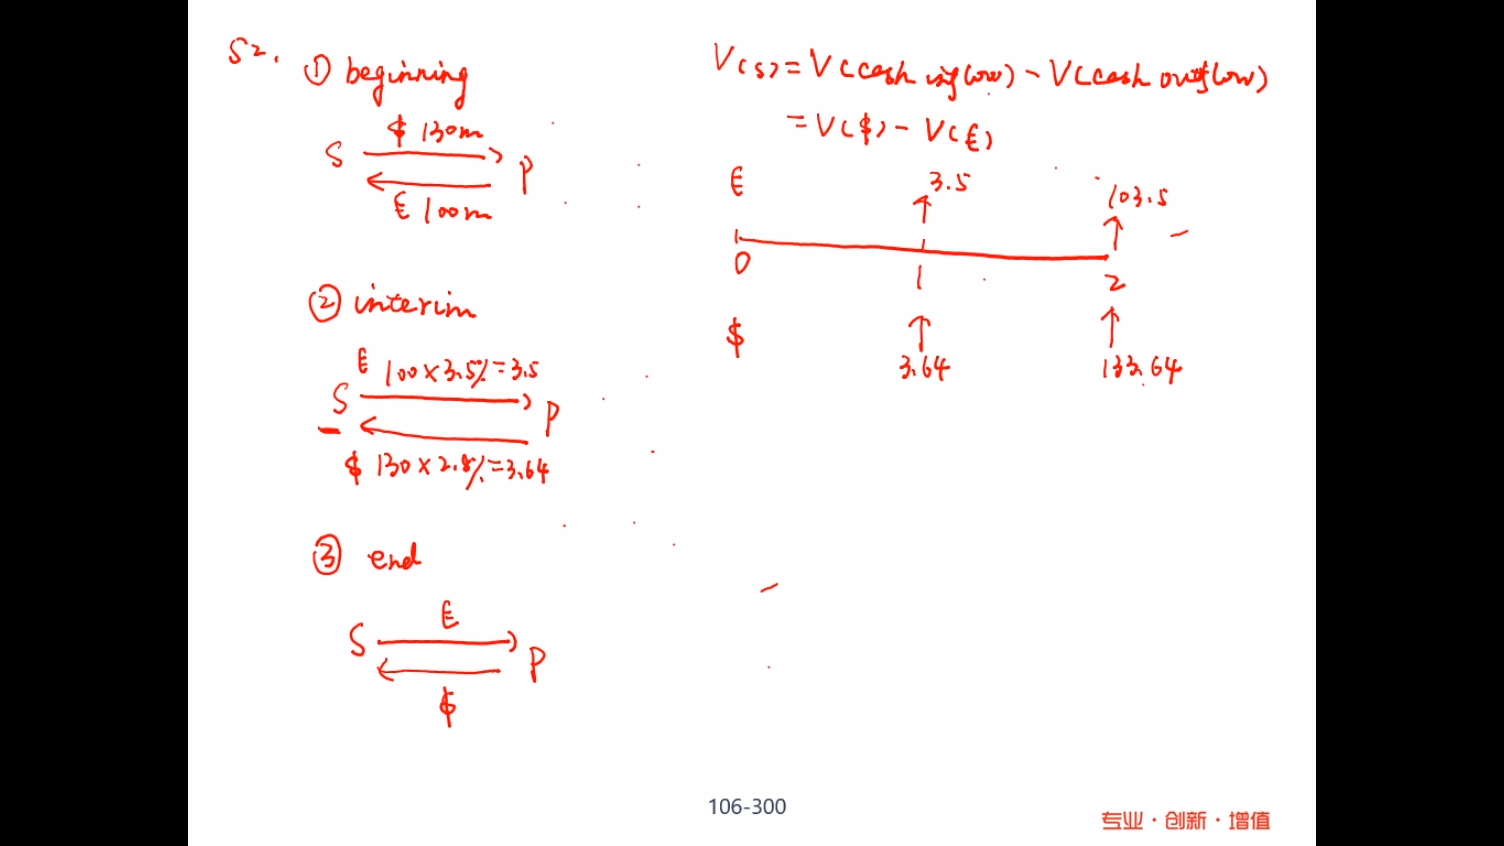 S2.
① beginning
$ 130m
S P
€ 100m
② interim
€ 100×3.5%=3.5
S P
$ 130×2.8%=3.64
③ end
€
S P
$
V(S)=V(cash inflow)-V(cash outflow)
=V($)-V(€)
€ 3.5 103.5
0 1 2
$ 3.64 133.64
106-300
专业·创新·增值